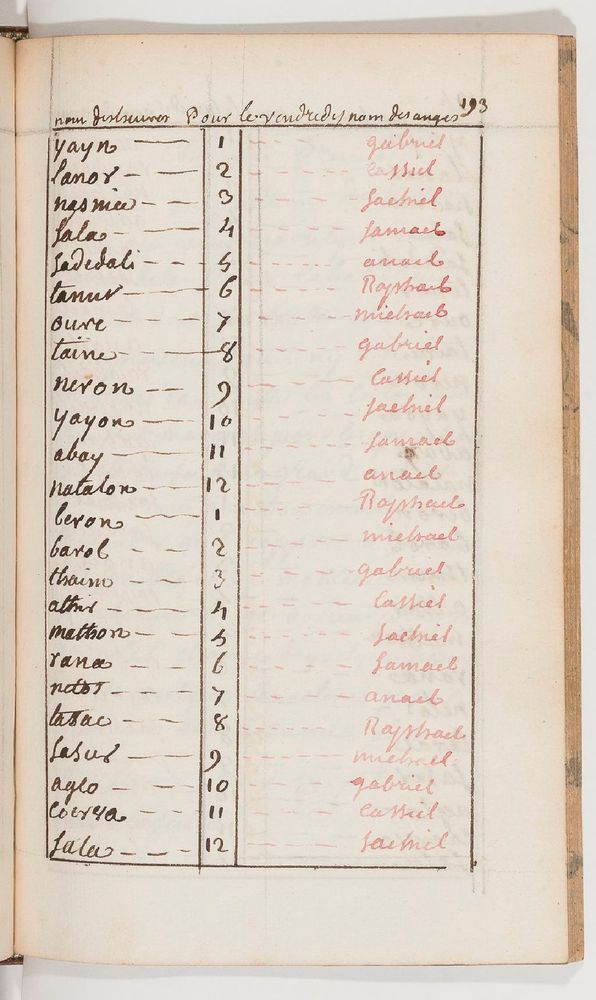 193
nom des heures Pour le vendredy nom des anges
yayn 1 gabriel
lanor 2 Cassiel
nasnia 3 sachiel
sala 4 samael
sadedali 5 anael
tanur 6 Raphael
oure 7 michael
taine 8 gabriel
neron 9 Cassiel
yayon 10 sachiel
abay 11 samael
natalon 12 anael
beron 1 Raphael
barol 2 michael
thaim 3 gabriel
athir 4 Cassiel
mathon 5 sachiel
rana 6 samael
netos 7 anael
tasac 8 Raphael
sasur 9 michael
aglo 10 gabriel
11 Cassiel
sala 12 sachiel